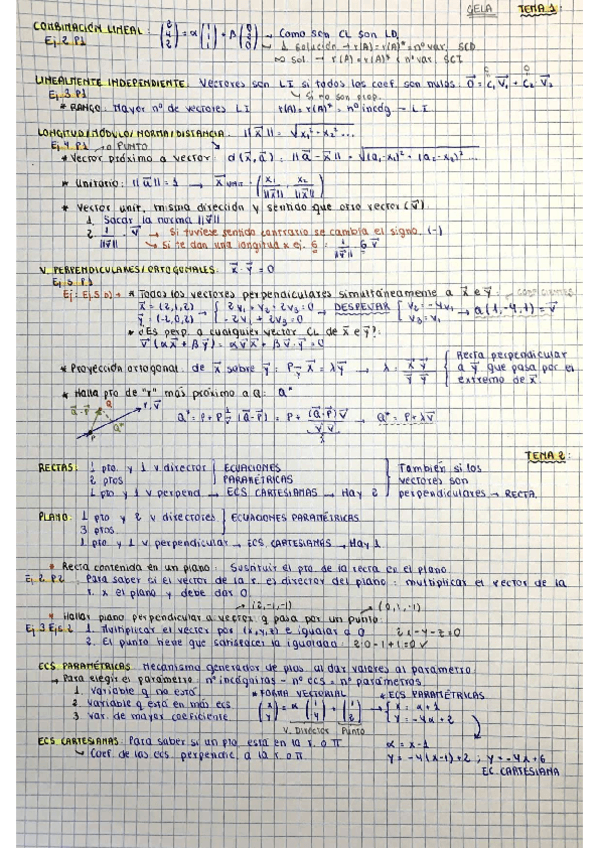 GELA TEMA 1:
COMBINACIÓN LINEAL: = α + β → Como son CL son LD
Ej. 2 P1 1 solución → r(A) = r(A)* = nº var. SCD
∞ sol → r(A) = r(A)* < nº var. SCI
LINEALMENTE INDEPENDIENTE: Vectores son LI si todos los coef son nulos: 0 = C₁V₁ + C₂V₂
Ej. 3 P1 Si no son prop.
* RANGO: Mayor nº de vectores LI r(A) = r(A)* = nº incóg → L.I.
LONGITUD/MÓDULO/NORMA/DISTANCIA: ||x|| = √x₁² + x₂² ...
Ej. 4 P1 → PUNTO
* Vector próximo a vector: d(x,a) = ||a - x|| = √(a₁-x₁)² + (a₂-x₂)² ...
* Unitario: ||a|| = 1 → x = (x₁/||x||, x₂/||x||)
* Vector unit. misma dirección y sentido que otro vector (v).
1. Sacar la norma ||v||
2. 1/||v|| · v → Si tuviese sentido contrario se cambia el signo. (-)
→ Si te dan una longitud x ej. 6: 1/||v|| · 6 · v
V. PERPENDICULARES/ORTOGONALES: x · y = 0
Ej. 5 P1
Ej: Ej. 5 D) → * Todos los vectores perpendiculares simultáneamente a x e y: COEFICIENTES
x = (2,1,2) → { 2v₁ + v₂ + 2v₃ = 0 → DESPEJAR { v₂ = -4v₁ → α(1,-4,1) = v
y = (-2,0,2) { -2v₁ + 2v₃ = 0 v₃ = v₁
* ¿Es perp. a cualquier vector CL de x e y?:
v · (αx + βy) = αvx + βv·y = 0
* Proyección ortogonal de x sobre y: P x = λy → λ = x·y / y·y { Recta perpendicular
a y que pasa por el
extremo de x
* Halla pto de "r" más próximo a Q: Q*
a-p Q r,v Q* = P + P (Q-P) = P + (Q-P)v / v·v → Q* = P + λv
P Q* λ
TEMA 2:
RECTAS: 1 pto. y 1 v director } ECUACIONES { También si los
2 ptos PARAMÉTRICAS vectores son
1 pto. y 1 v perpend → ECS CARTESIANAS → Hay 2 perpendiculares → RECTA.
PLANO: 1 pto y 2 v directores } ECUACIONES PARAMÉTRICAS
3 ptos.
1 pto y 1 v perpendicular → ECS. CARTESIANAS → Hay 1
* Recta contenida en un plano: Sustituir el pto de la recta en el plano.
Ej. 2 P.2: Para saber si el vector de la r. es director del plano: multiplicar el vector de la
r. x el plano y debe dar 0.
(2,-1,-1) (0,1,-1)
* Hallar plano perpendicular a vector q pasa por un punto:
Ej. 3 Ejs. 2 1. Multiplicar el vector por (x,y,z) e igualar a 0 2x - y - z = 0
2. El punto tiene que satisfacer la igualdad: 2·0 - 1 + 1 = 0 ✓
ECS PARAMÉTRICAS: Mecanismo generador de ptos. al dar valores al parámetro
→ Para elegir el parámetro: nº incógnitas - nº ecs = nº parámetros
1. Variable q no está * FORMA VECTORIAL * ECS PARAMÉTRICAS
2. Variable q está en más ecs (x y) = α (1 -4) + (1 2) → { x = α + 1
3. Var. de mayor coeficiente y = -4α + 2
V. Director Punto
ECS CARTESIANAS: Para saber si un pto está en la r. o π α = x - 1
→ Coef. de las ecs. perpendic. a la r. o π y = -4(x-1) + 2 ; y = -4x + 6
EC. CARTESIANA